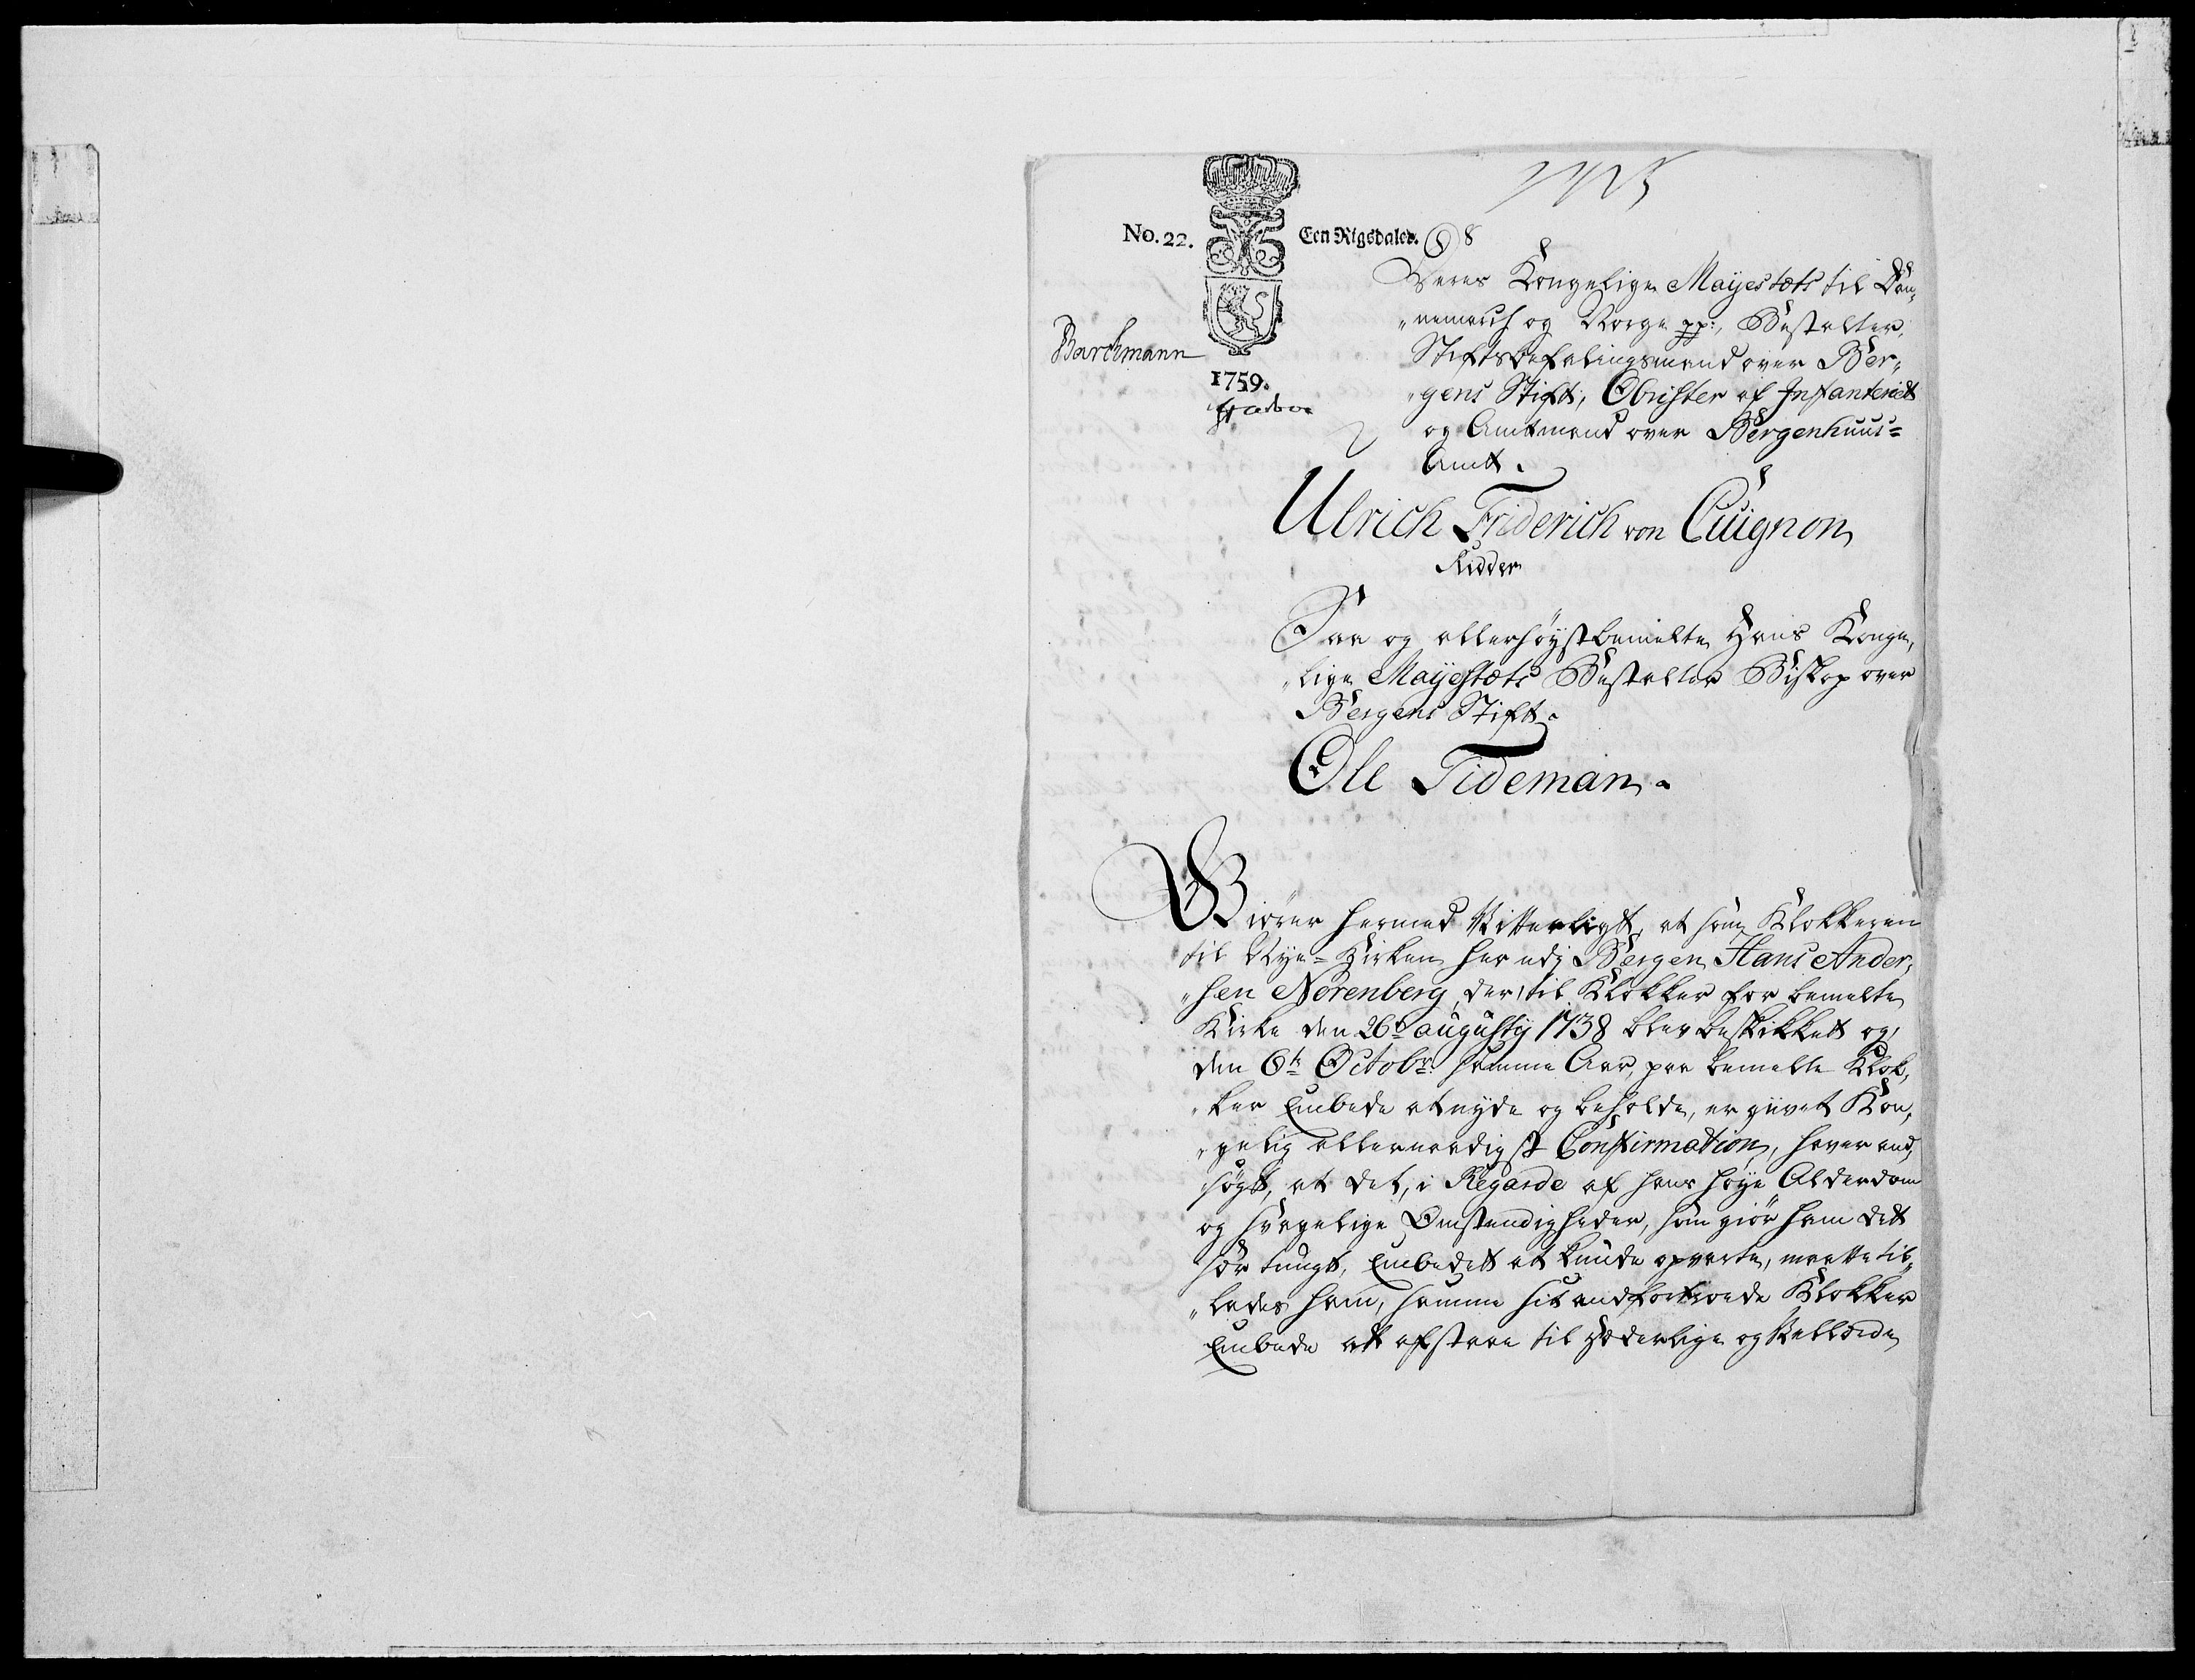 No. 22.
Een Rigsdaler.
Barchmann
1759.
Deres Kongelige Mayestets til Dan„
„nemarch og Norge pp:, Bestalter
Stiftsbefalingsmand over Ber„
„gens Stift, Obrister af Infanteriet
og Amtmand over Bergenhuus=
Amt.
Ulrich Friderich von Cuignon
Ridder
Saa og allerhøystbemelte Hans Konge„
„lige Mayestets Bestalter Biskop over
Bergens Stift.
Ole Tideman.
Giører hermed Vitterligt, at som Klokkeren
til Nye=Kirken her udj Bergen, Hans Ander„
„sen Nørenberg, der, til Klokker for bemelte
Kirke den 26t augusty 1738 blev beskikkett og,
den 6t Octobr: samme Aar, paa bemelte Klok„
„ker Embede at nyde og beholde, er givet Kon„
„gelig allernaadigst Confirmation, haver and„
søgt, at det, i Regarde af hans høye Alderdom
og svagelige Omstendigheder, som giør ham det
for tungt, Embedett at kunde opvarte, maatte til„
„lades ham, samme sit andfortroede Klokker
Embede att afstaae til Hæderlige og Vellærde